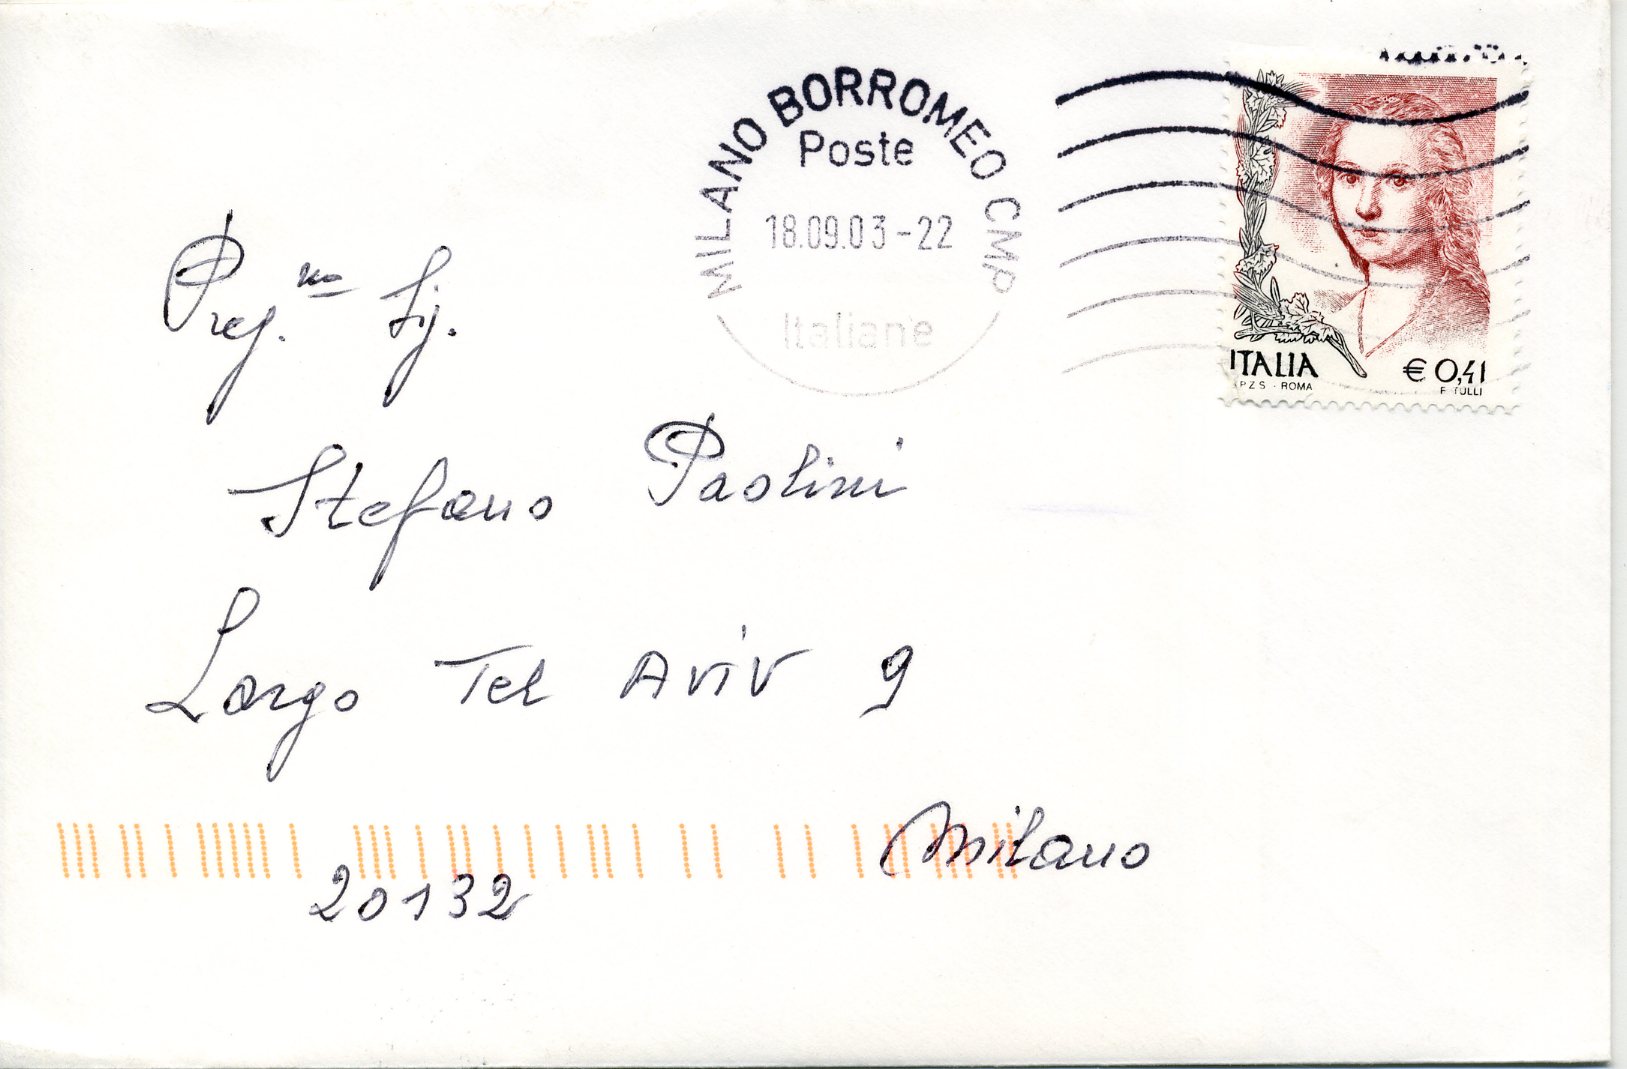 MILANO BORROMEO CMP
Poste
18.09.03-22
Italiane
ITALIA
€ 0,41
P.Z.S. - ROMA
F. TULLI
Preg.mo Sig.
Stefano Paolini
Largo Tel Aviv 9
20132 Milano